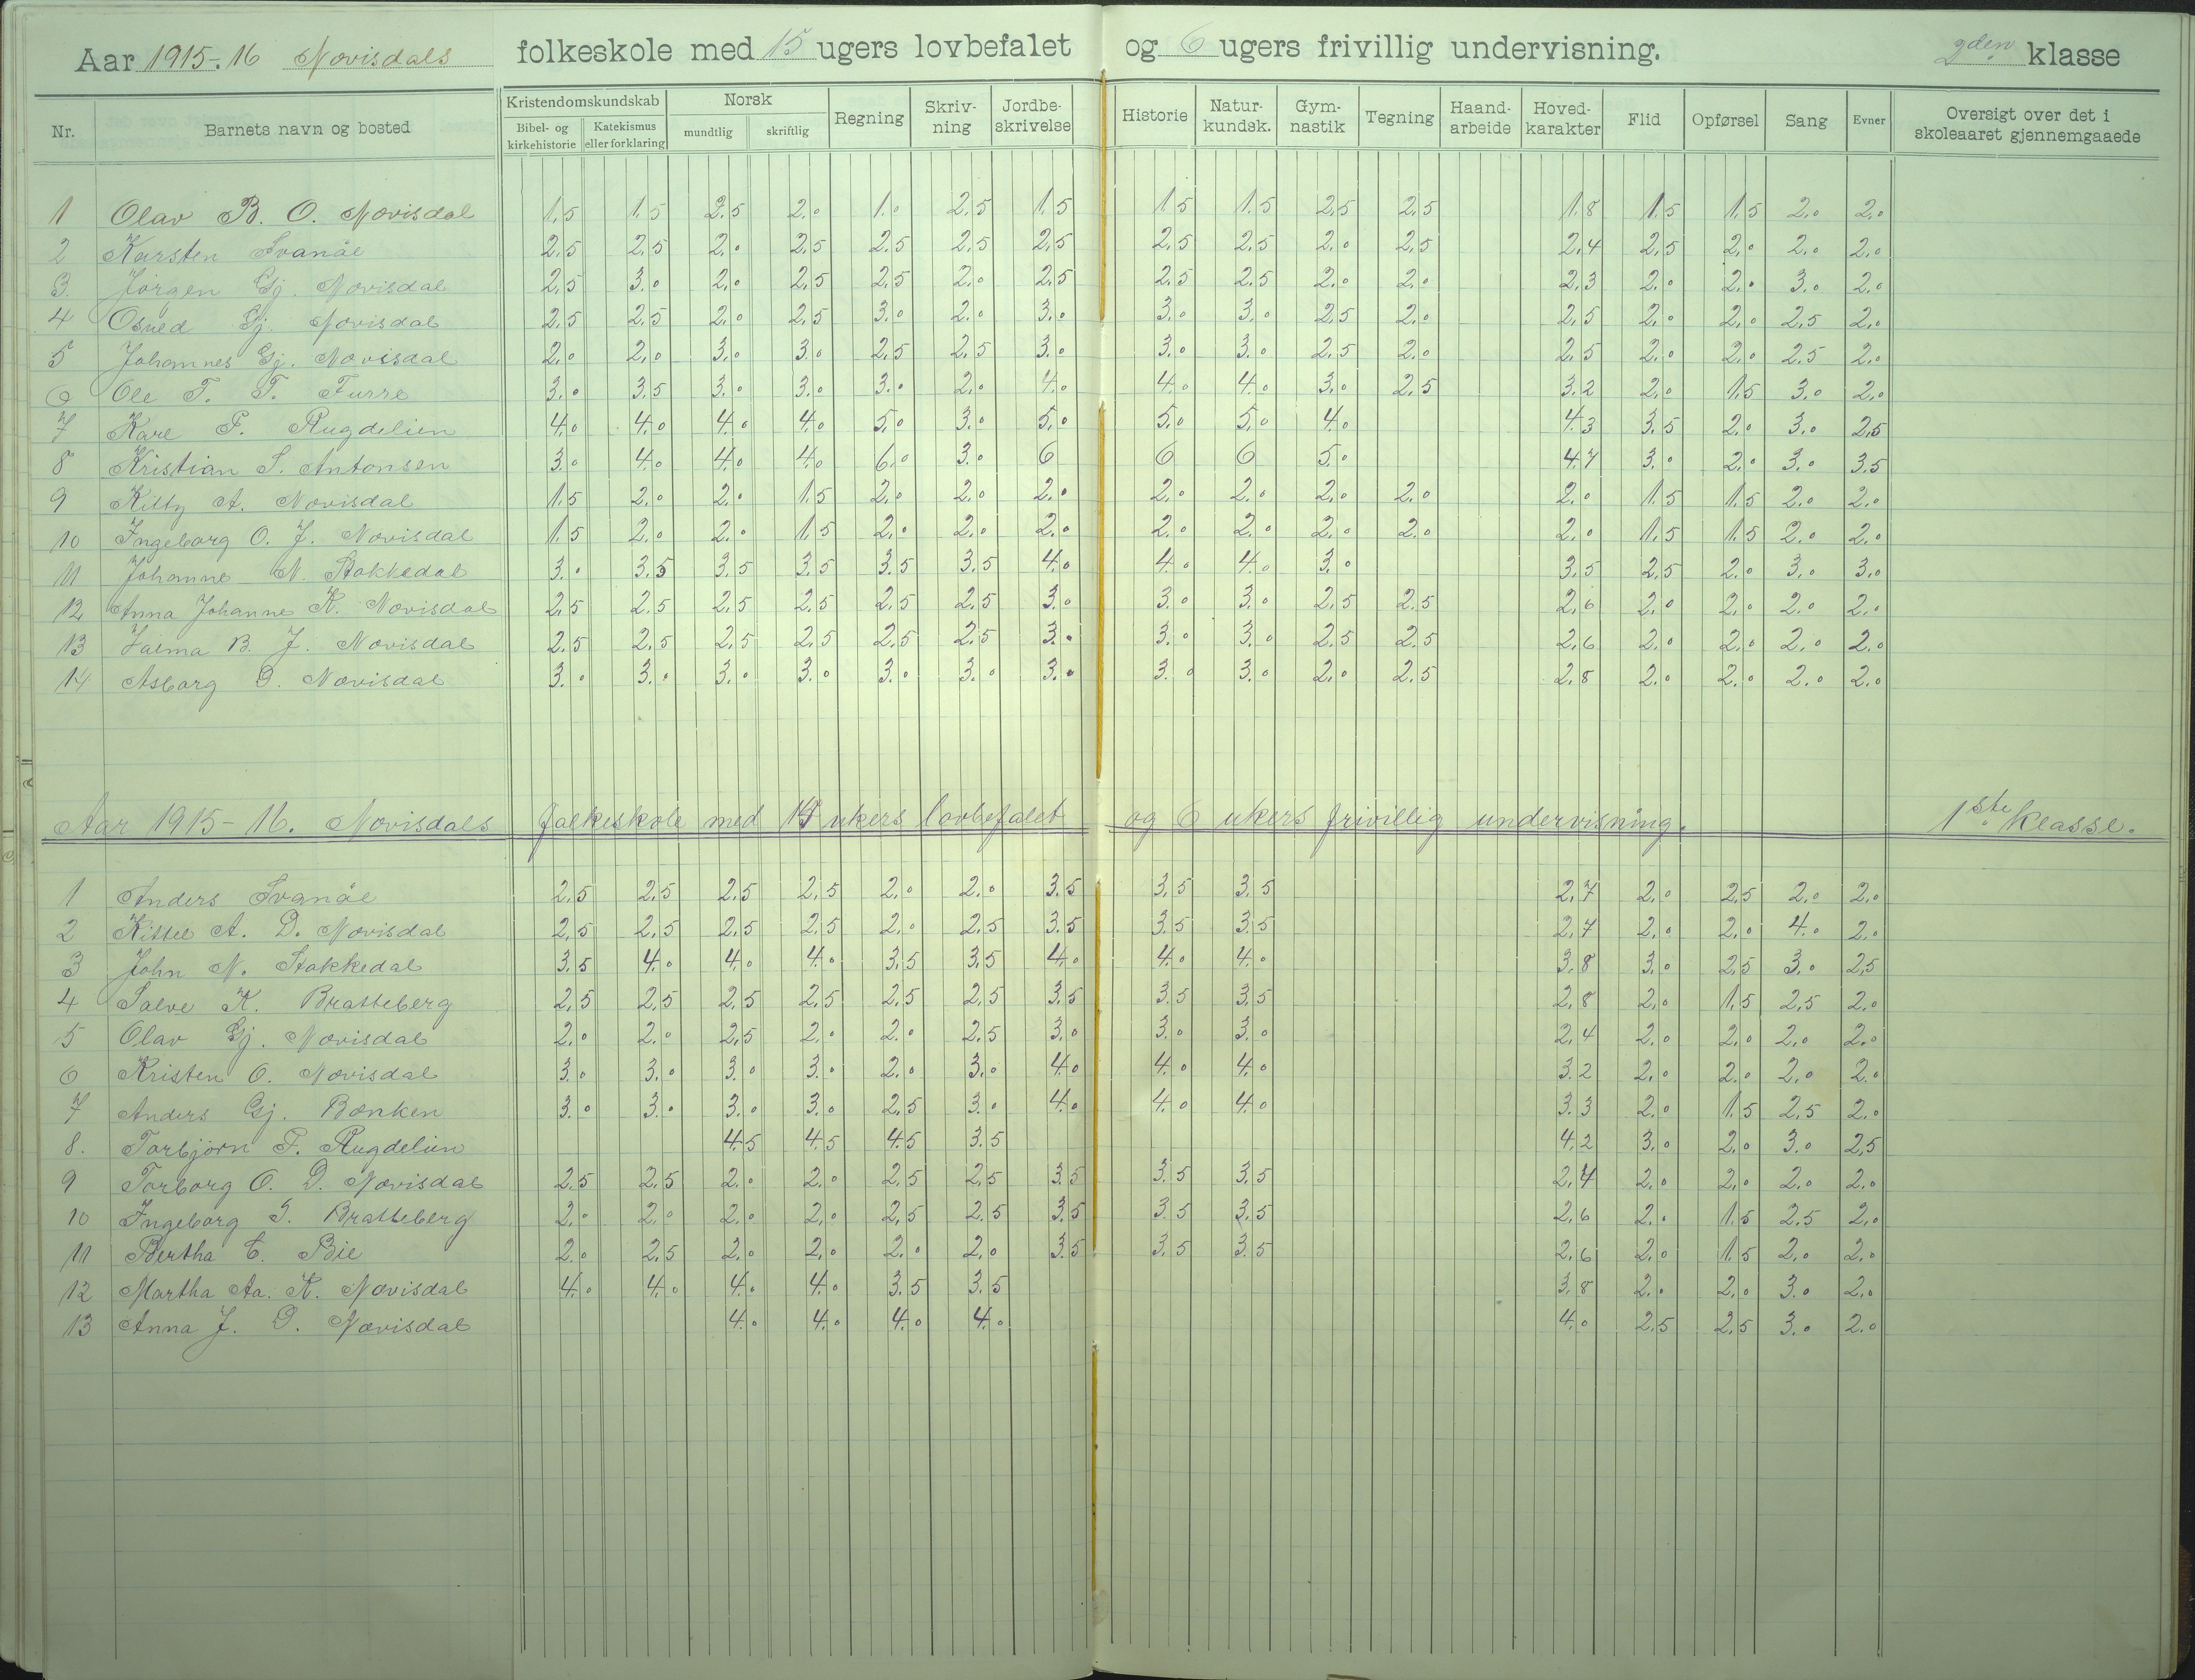 Aar 1915-16 Novisdals folkeskole med 15 ugers lovbefalet og 6 ugers frivillig undervisning. 2den klasse
Nr. Barnets navn og bosted Kristendomskundskab Norsk Regning Skriv-ning Jordbe-skrivelse Historie Natur-kundsk. Gym-nastik Tegning Haand-arbeide Hoved-karakter Flid Opførsel Sang Evner Oversigt over det i skoleaaret gjennemgaaede
Bibel- og kirkehistorie Katekismus eller forklaring mundtlig skriftlig
1 Olav B. O. Novisdal 1.5 1.5 2.5 2.0 1.0 2.5 1.5 1.5 1.5 2.5 2.5 1.8 1.5 1.5 2.0 2.0
2 Karsten Svanöe 2.5 2.5 2.0 2.5 2.5 2.5 2.5 2.5 2.5 2.0 2.5 2.4 2.5 2.0 2.0 2.0
3. Jörgen Gj. Novisdal 2.5 3.0 2.0 2.5 2.5 2.0 2.5 2.5 2.5 2.0 2.0 2.3 2.0 2.0 3.0 2.0
4 Osued Gj. Novisdal 2.5 2.5 2.0 2.5 3.0 2.0 3.0 3.0 3.0 2.5 2.0 2.5 2.0 2.0 2.5 2.0
5 Johannes Gj. Novisdal 2.0 2.0 3.0 3.0 2.5 2.5 3.0 3.0 3.0 2.5 2.0 2.5 2.0 2.0 2.5 2.0
6 Ole T. T. Furre 3.0 3.5 3.0 3.0 3.0 2.0 4.0 4.0 4.0 3.0 2.5 3.2 2.0 1.5 3.0 2.0
7 Kare F. Rugdelien 4.0 4.0 4.0 4.0 5.0 3.0 5.0 5.0 5.0 4.0 4.3 3.5 2.0 3.0 2.5
8 Kristian S. Antonsen 3.0 4.0 4.0 4.0 6.0 3.0 6 6 6 5.0 4.7 3.0 2.0 3.0 3.5
9 Kitty A. Novisdal 1.5 2.0 2.0 1.5 2.0 2.0 2.0 2.0 2.0 2.0 2.0 2.0 1.5 1.5 2.0 2.0
10 Ingeborg O. J. Novisdal 1.5 2.0 2.0 1.5 2.0 2.0 2.0 2.0 2.0 2.0 2.0 2.0 1.5 1.5 2.0 2.0
11 Johanne N. Stakkedal 3.0 3.5 3.5 3.5 3.5 3.5 4.0 4.0 4.0 3.0 3.5 2.5 2.0 3.0 3.0
12 Anna Johanne K. Novisdal 2.5 2.5 2.5 2.5 2.5 2.5 3.0 3.0 3.0 2.5 2.5 2.6 2.0 2.0 2.0 2.0
13 B. J. Novisdal 2.5 2.5 2.5 2.5 2.5 2.5 3.0 3.0 3.0 2.5 2.5 2.6 2.0 2.0 2.0 2.0
14 Asborg D. Novisdal 3.0 3.0 3.0 3.0 3.0 3.0 3.0 3.0 3.0 2.0 2.5 2.8 2.0 2.0 2.0 2.0
Aar 1915-16. Novisdals folkeskole med ukers lovbefalet og 6 ukers frivillig undervisning. 1ste klasse.
1 Anders Svanöe 2.5 2.5 2.5 2.5 2.0 2.0 3.5 3.5 3.5 2.7 2.0 2.5 2.0 2.0
2 Kittel A. D. Novisdal 2.5 2.5 2.5 2.5 2.0 2.5 3.5 3.5 3.5 2.7 2.0 2.0 4.0 2.0
3 John N. Stakkedal 3.5 4.0 4.0 4.0 3.5 3.5 4.0 4.0 4.0 3.8 3.0 2.5 3.0 2.5
4 Salve K. Bratteberg 2.5 2.5 2.5 2.5 2.5 2.5 3.5 3.5 3.5 2.8 2.0 1.5 2.5 2.0
5 Olav Gj. Novisdal 2.0 2.0 2.5 2.0 2.0 2.5 3.0 3.0 3.0 2.4 2.0 2.0 2.0 2.0
6 Kristen O. Novisdal 3.0 3.0 3.0 3.0 2.0 3.0 4.0 4.0 4.0 3.2 2.0 2.0 2.0 2.0
7 Anders Gj. Bænken 3.0 3.0 3.0 3.0 2.5 3.0 4.0 4.0 4.0 3.3 2.0 1.5 2.5 2.0
8. Torbjörn F. Rugdelien 4.5 4.5 4.5 3.5 4.2 3.0 2.0 3.0 2.5
9 Torborg O. D. Novisdal 2.5 2.5 2.0 2.0 2.5 2.5 3.5 3.5 3.5 2.4 2.0 2.0 2.0 2.0
10 Ingeborg S. Bratteberg 2.0 2.0 2.0 2.0 2.5 2.5 3.5 3.5 3.5 2.6 2.0 1.5 2.5 2.0
11 Bertha E. Bie 2.0 2.5 2.0 2.0 2.0 2.0 3.5 3.5 3.5 2.6 2.0 1.5 2.0 2.0
12 Martha Aa. K. Novisdal 4.0 4.0 4.0 4.0 3.5 3.5 3.8 2.0 2.0 3.0 2.0
13 Anna J. D. Novisdal 4.0 4.0 4.0 4.0 4.0 2.5 2.5 3.0 2.0